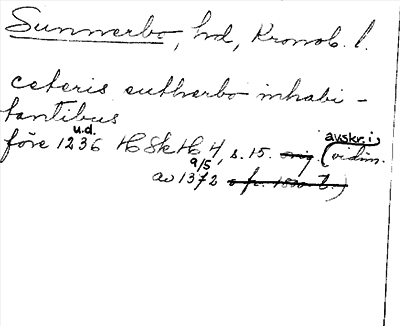 Sunnerbo, hd, Kronob. l.
ceteris sutherbo inhabi-
tantibus
före u.d. 1236 HSkH 4, s. 15. orig. (avskr. i vidim.
av 9/5 1372 o fr. 1500-t.)